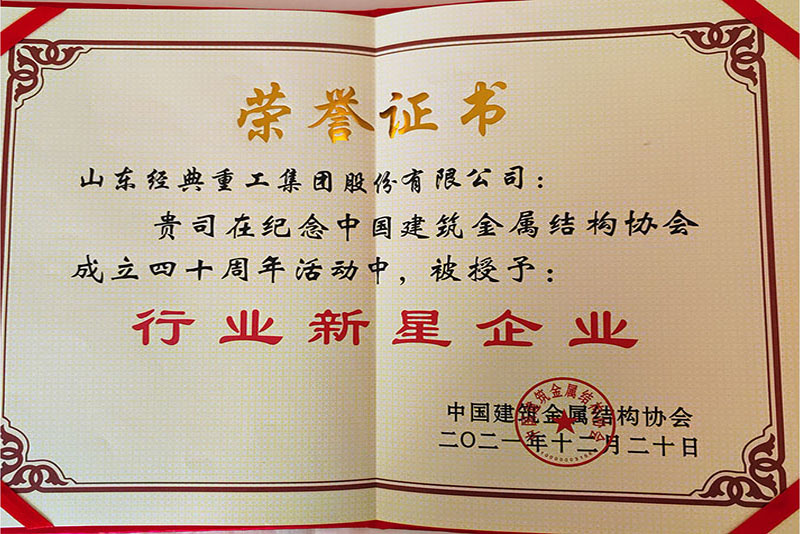 荣誉证书
山东经典重工集团股份有限公司：
贵司在纪念中国建筑金属结构协会
成立四十周年活动中，被授予：
行业新星企业
中国建筑金属结构协会
二〇二一年十二月二十日
中国建筑金属结构协会